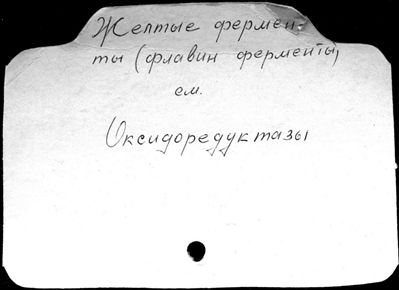 Желтые фермен-
ты (флавин ферменты,
см.
Оксидоредуктазы